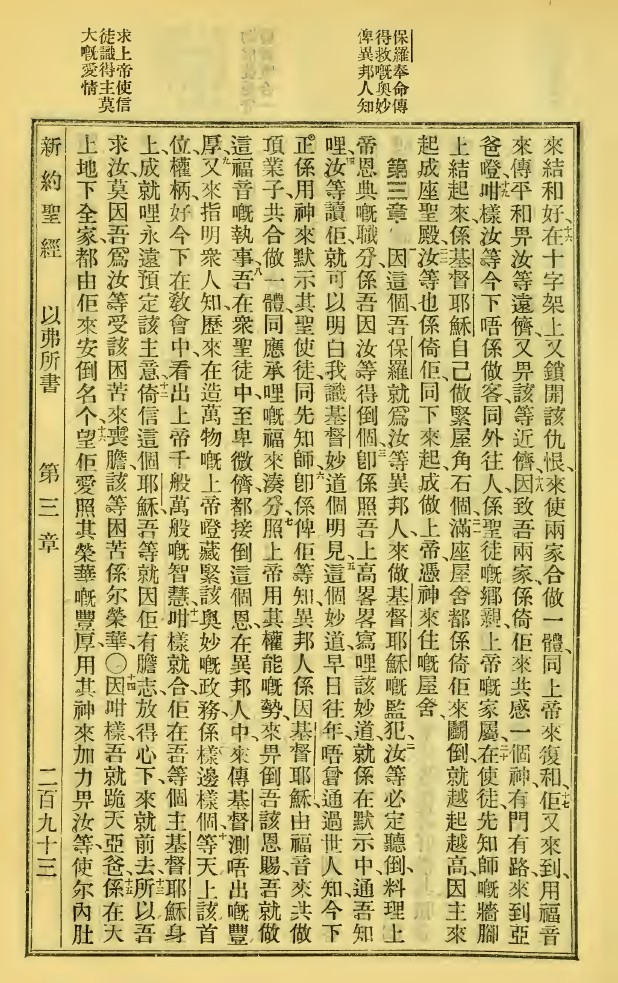 保羅奉命傳
得救嘅奥妙
俾異邦人知
求上帝使信
徒識得主莫
大嘅愛情
來結和好、十六在十字架上又鎖開該仇恨、來使兩家合做一體、同上帝來復和、十七佢又來到、用福音
來傳平和畀汝等遠儕、又畀該等近儕、十八因致吾兩家係倚佢來共感一個神、有門有路來到亞
爸、十九噔咁樣汝等今下唔係做客同外往人、係聖徒嘅鄉親、上帝嘅家屬、二十在使徒先知師嘅牆腳
上結起來、係基督耶穌自己做緊屋角石個、二一滿座屋舍都係倚佢來鬭倒、就越起越高、因主來
起成座聖殿、二二汝等也係倚佢同下來起成做上帝憑神來住嘅屋舍、
第三章 因這個、吾保羅就爲汝等異邦人、來做基督耶穌嘅監犯、二汝等必定聽倒料理上
帝恩典嘅職分、係吾因汝等得倒個、三卽係照吾上高畧畧寫哩、該妙道就係在默示中通吾知
哩、四汝等讀佢就可以明白我識基督妙道個明見、五這個妙道、早日往年唔曾通過世人知、今下
正係用神來默示其聖使徒同先知師、六卽係俾佢等知異邦人係因基督耶穌、由福音來共做
頂業子、共合做一體、同應承哩嘅福來湊分、七照上帝用其權能嘅勢來畀倒吾該恩賜、吾就做
這福音嘅執事、八吾在衆聖徒中至卑微儕、都接倒這個恩、在異邦人中來傳基督測唔出嘅豐
厚、九又來指明衆人知、歷來在造萬物嘅上帝噔藏緊該奥妙嘅政務係樣邊樣個、十等天上該首
位權柄好今下在敎會中看出上帝千般萬般嘅智慧、十一咁樣就合佢在吾等個主基督耶穌身
上成就哩永遠預定該主意、十二倚信這個耶穌、吾等就因佢有膽志、放得心下來就前去、十三所以吾
求汝莫因吾爲汝等受該困苦來喪膽、該等困苦係尔榮華、〇十四因咁樣吾就跪天亞爸、十五係在天
上地下全家都由佢來安倒名个、十六望佢愛照其榮華嘅豐厚、用其神來加力畀汝等、使尔內肚
新約聖經 以弗所書 第三章 二百九十三